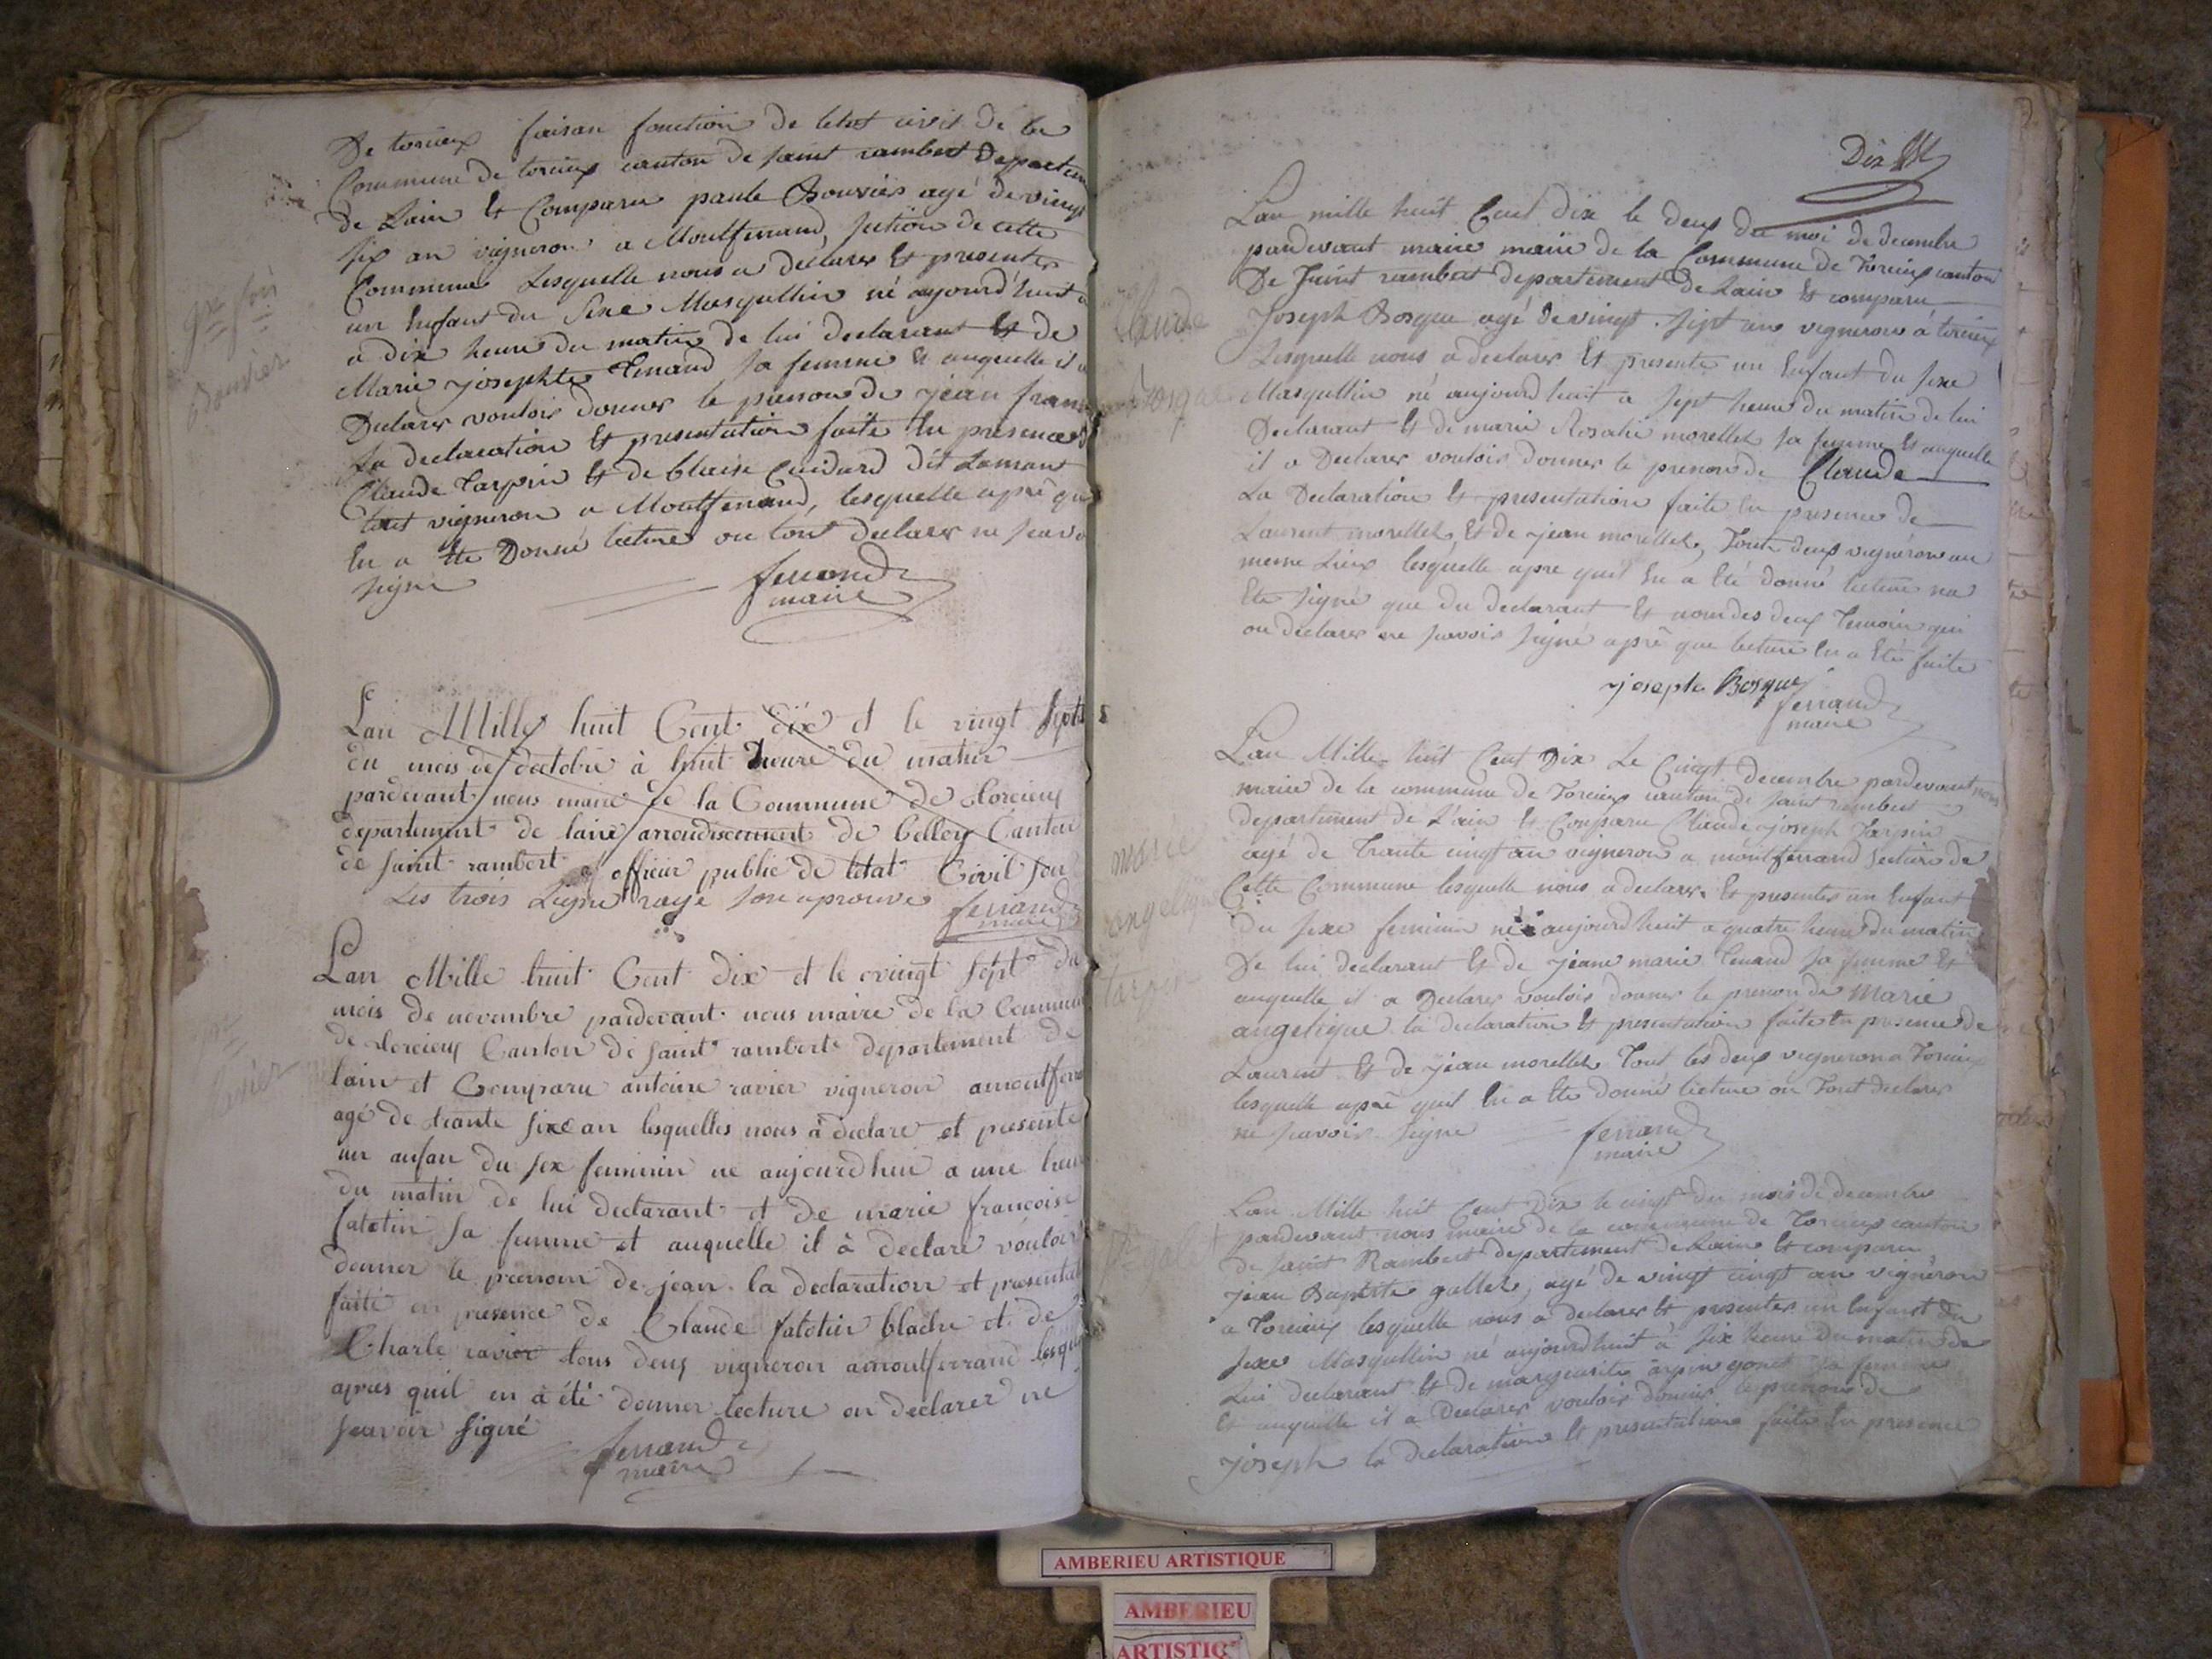 De torcieux faisan fonction de letat civil de la
Commune de torcieux canton de saint rambert Departem
de Lain Et Comparu paule Bouvier agé de vingt
six an vigneron a Montferrand, section de cette
Commune Lesquelle nous a declarer Et presenter
un Enfant du sexe Masqullin né aujourd'huit
a dix heure du matin de lui declarant Et de
Marie josephte Tenand sa femme Et auquelle il a
Declarer voulois donner le prenom de jean fran
La declaration Et presentation faite En presence
Claude Tarpin Et de blaise Cuidard dit Lamant
tout vigneron a Montferrand, lesquelle aprê qu
En a Ete Donné lecture on tout declarer ne savo
signé
ferrand
maire
jn fois
Bouvier
Lan Mille huit Cent dix et le vingt sept
du mois de doctobre à huit heure du matin
pardevant nous maire de la Commune de Torcieux
departement de lain arrondissement de Belley Canton
de saint rambert officier public de letat Civil sou
Les trois Ligne rayé son aprouvé ferrand
maire
Lan Mille huit Cent dix et le vingt sept du
mois de novembre pardevant nous maire de la Commun
de torcieux Canton de saint rambert departement de
lain et Comparu antoine ravier vigneron amontferra
agé de trante sixe an lesquelles nous à declare et presenté
un anfan du sex feminin ne aujourdhui a une heur
du matin de lui declarant et de marie francoise
fatotin sa femme et auquelle il à declaré vouloir
donner le prenom de jean la declaration et presentat
faite en presence de Claude fatotin blache et de
Charle ravier tous deux vigneron amontferrand lesque
apres quil en a été donner lecture on declarer ne
savoir signé
ferrand
maire
ravier
Dix
Lan mille huit Cent dix le deux du moi de decembre
pardevant maire maire de la Commune de Torcieux canton
De Saint rambert departement de Lain Et comparu
Joseph Bosque agé de vingt sept an vigneron à torcieux
Lesquelle nous a declarer Et presente un Enfant du sexe
Masqullin né aujourdhuit a sept heure du matin de lui
Declarant Et de marie Rosalie morellet sa femme Et auquelle
il a Declarer voulois donner le prenom de Claude
La Declaration Et presentation faite En presence de
Laurent morellet, Et de jean morellet, Toute deux vignéron au
meme Lieux lesquelle apre quil En a Eté donné lecture na
Ete signé que du declarant Et nom des deux Temoin qui
on declarer ne savoir signé aprê que lecture En a Eté faite
joseph Bosque
ferrand
maire
Claude
Bosque
Lan Mille huit Cent Dix Le Cingt decembre pardevant nous
maire de la commune de Torcieux canton de saint rambert
departement de L'ain Et Comparu Claude joseph Tarpin
agé de Trante cingt an vigneron a montferrand section de
Cette Commune lesquelle nous a declarer Et presenter un Enfant
du sexe feminin né aujourdhuit a quatre heure du matin
De lui declarant Et de jeane marie Tenand sa femme Et
auquelle il a Declarer voulois donner le prenon de Marie
angelique la declaration Et presentation faite En presence de
Laurent Et de jean morellet Tout les deux vigneron a Torcieux
lesquelle apré quil En a Ete donné lecture on Tout declarer
ne savoir signe
ferrand
maire
marie
angelique
tarpin
Lan Mille huit Cent Dix le cingt du mois de decembre
pardevant nous maire de la commune de Torcieux canton
de saint Rambert departement de Lain Et comparu
jean Baptiste gallet, agé de vingt cingt an vignéron
a Torcieux lesquelle nous a declarer Et presenter un Enfant du
sexe Masqullin né aujourdhuit à six heure du matin de
Lui declarant Et de margeurite arpin gonet sa femme
Et auquelle il a Declarer voulois donner le prenom de
joseph la declaration Et presentation faite En presence
AMBERIEU ARTISTIQUE
AMBERIEU
ARTISTIQ